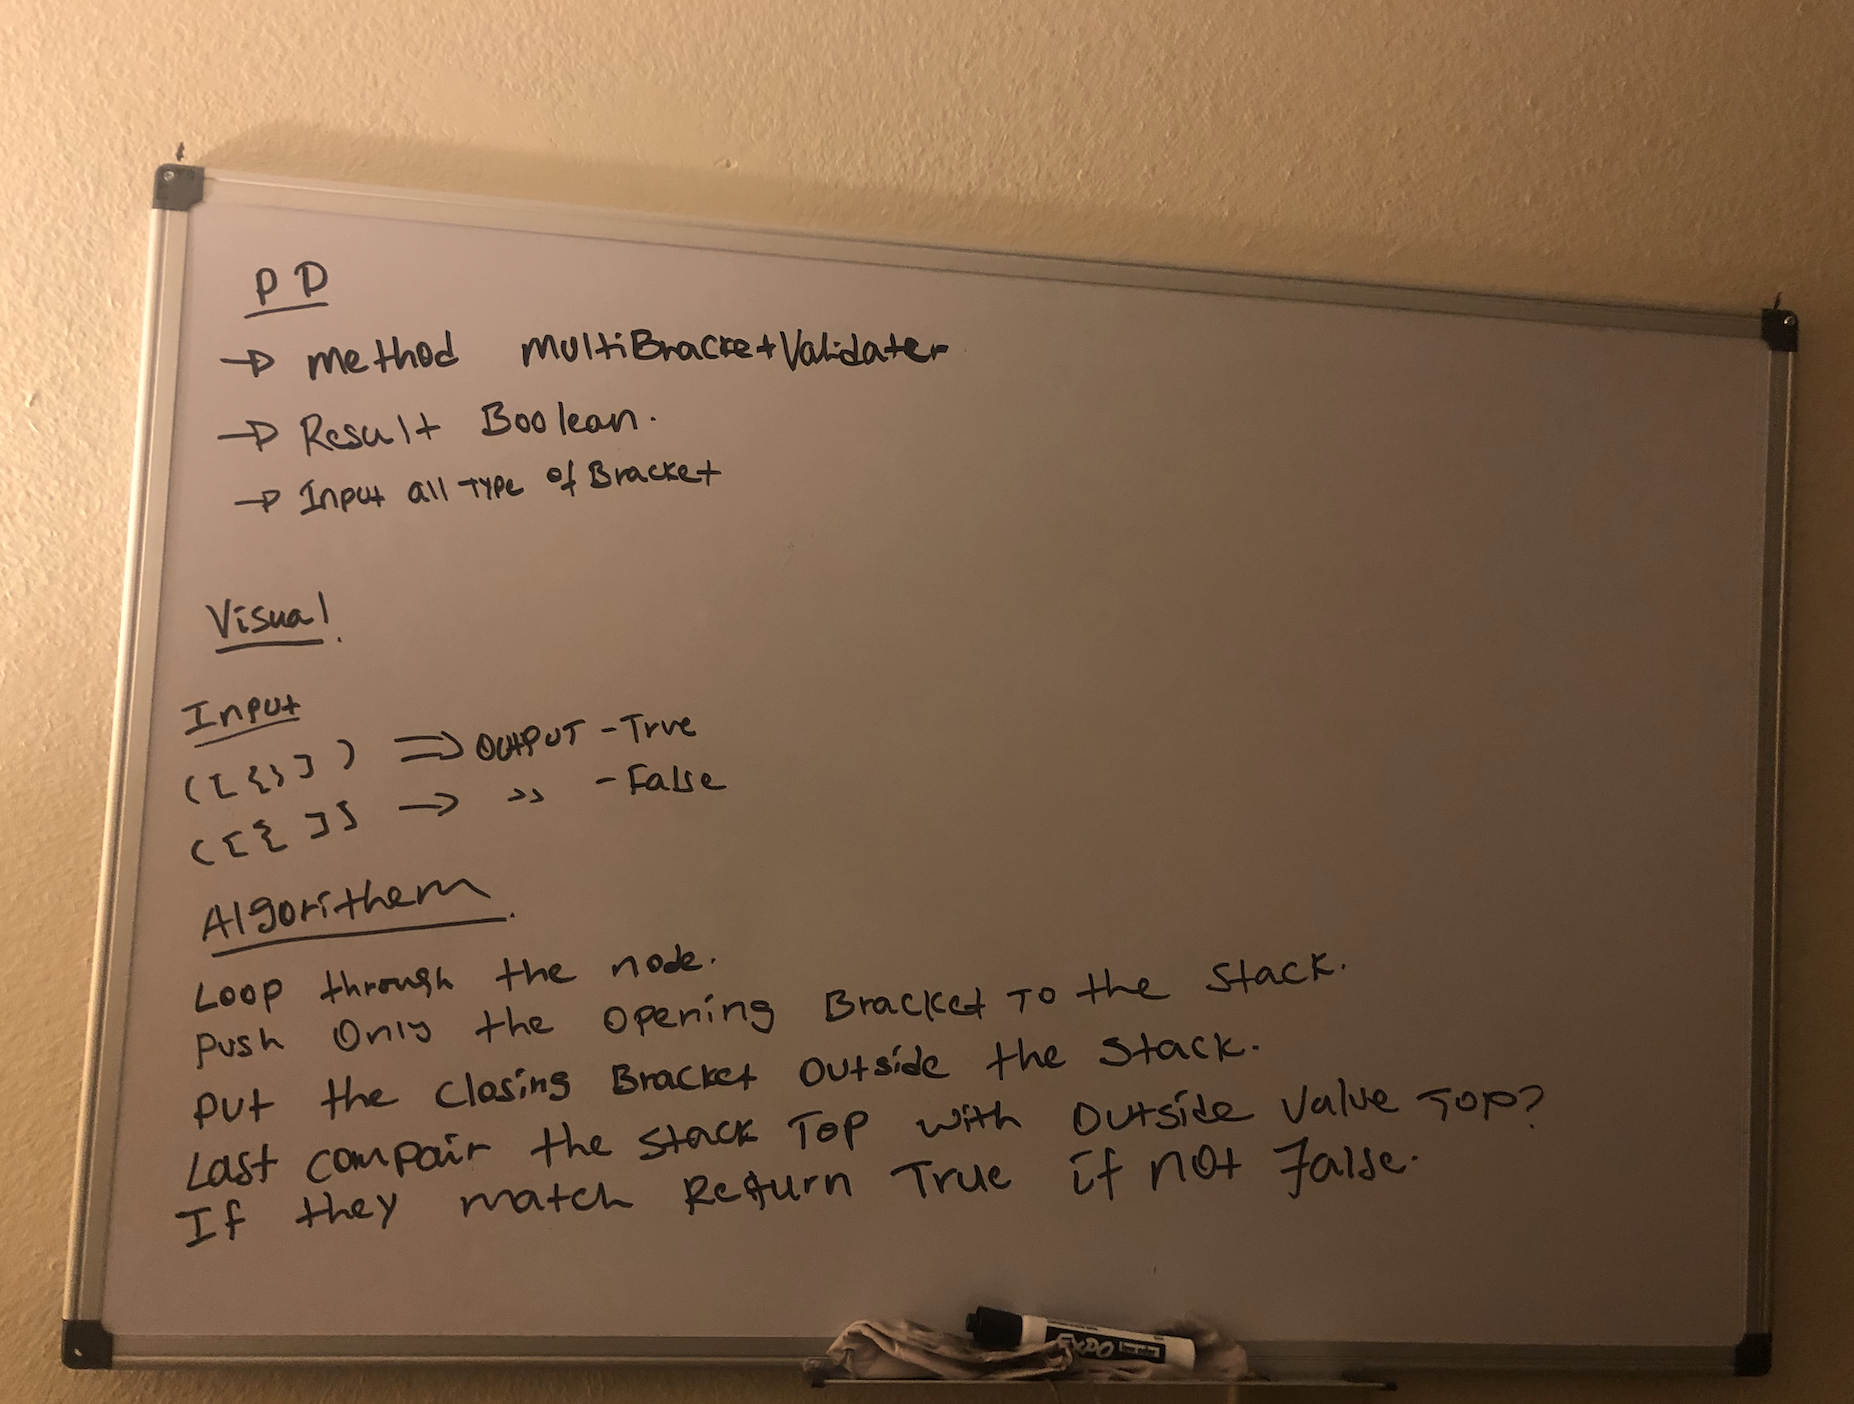 PD
→ method multiBracketValidater
→ Result Boolean.
→ Input all Type of Bracket
Visual.
Input
([{}]) ⇒ OUTPUT - True
([{ ]] → >> - False
Algorithem.
Loop through the node.
Push Only the opening Bracket To the Stack.
Put the closing Bracket outside the Stack.
Last compair the Stack Top with Outside Value Top?
If they match Return True if not False.
EXPO